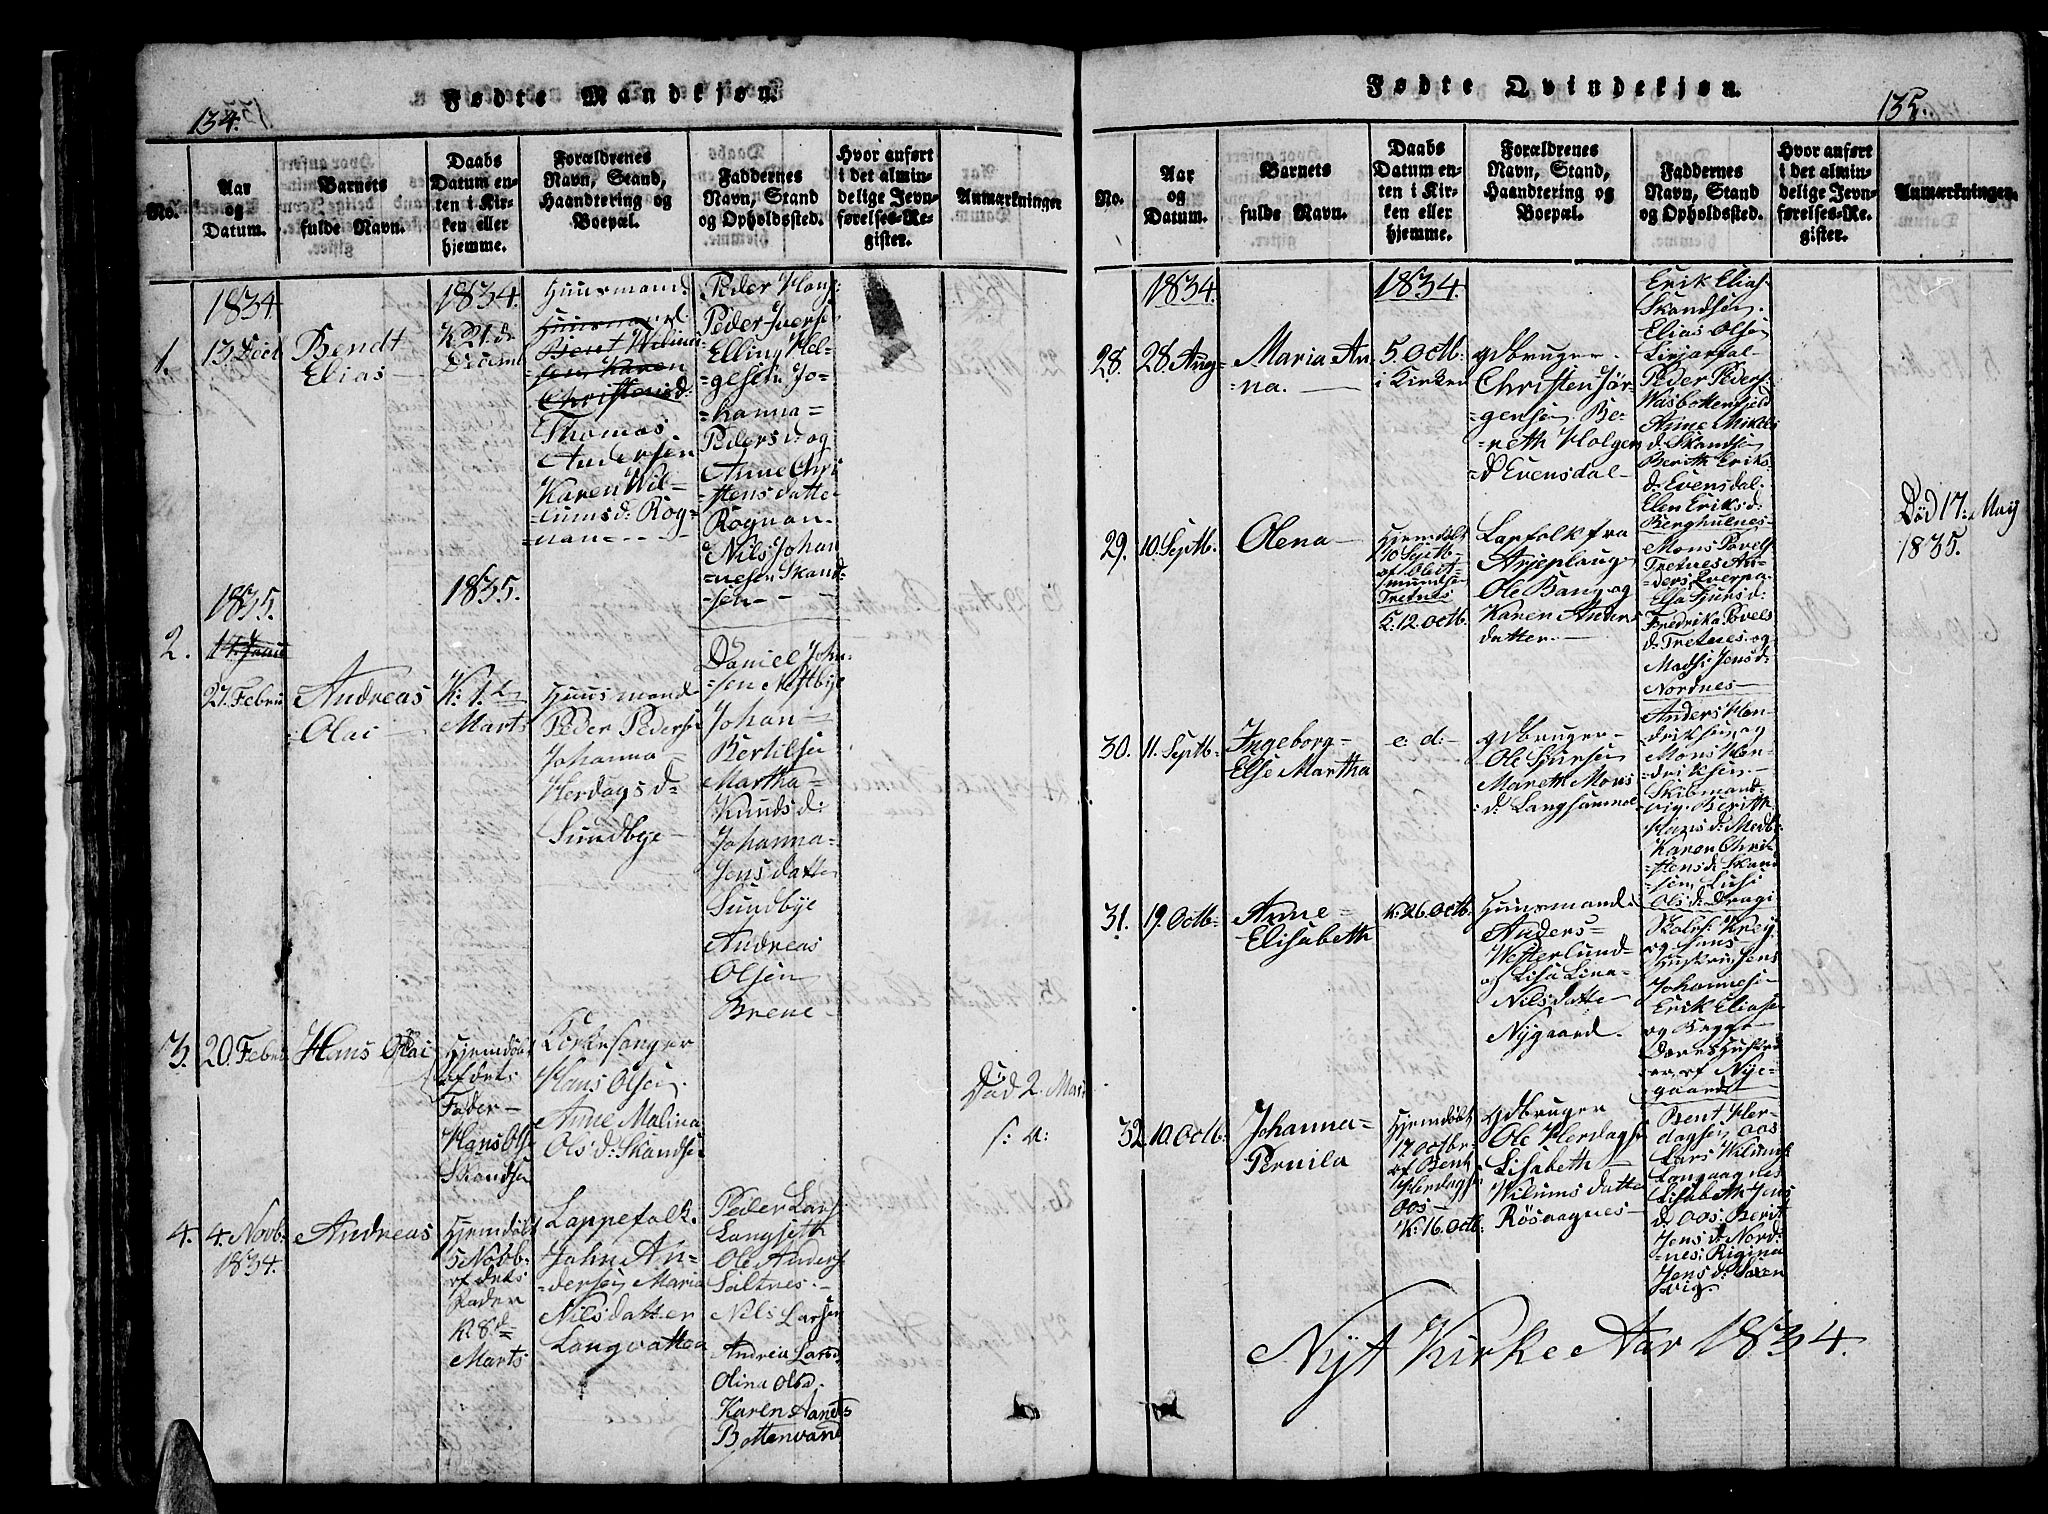 134.
Fødte Mandkjøn.
No.
Aar
og
Datum.
Barnets
fulde Navn.
Daabs
Datum en-
ten i Kir-
ken eller
hjemme.
Forældrenes
Navn, Stand,
Haandtering og
Boepæl.
Faddernes
Navn, Stand
og Opholdssted.
Hvor anført
i det almin-
delige Jevn-
førelses-Re-
gister.
Anmærkninger
1834
1.
13. Decb
Bendt
Elias
1834.
K. 21. de
Decemb
Huusmand
Huusmand
Bent Wilum
sen Karen
Christensd:
Thomas
Andersen
Karen Wil-
lumsd: Rog-
nan
Peder Hans
Peder Iverse
Elling Hel-
gesen Jo-
hanna
Pedersd: og
Anne Chri
stensdatte
Rognan
Nils Johan
nesen Skand-
sen
1835.
1835.
2.
17. Janu
27. Febru
Andreas
Olai
K: 1.
Marts
Huusmand
Peder Pederse
Johanna
Herdagsd
Sundbye
Daniel John
sen Nestbye
Johan
Bertilsen
Martha
Knudsd:
Johanna
Jensdatte
Sundbye
Andreas
Olsen
Brene
3.
20. Febru
Hans Olai
Hjemdöbt
af dets
Fader
Hans Ols
Skandsen
Kirkesanger
Hans Olsen
Anne Malina
Olsd: Skandsen
Död 2. Mai
s: a:
4.
4. Novb
1834.
Andreas
Hjemdöbt
5 Novb
af dets
Fader
K 8. d
Marts
Lappefolk.
John An-
dersen Maria
Nilsdatter
Langvatten
Peder Lars
Langseth
Ole Anders
Saltnes.
Nils Larsen
Andrea Larsd
Olina Olsd.
Karen Hansd
Bottenvand
135.
Fødte Qvindekjøn.
No.
Aar
og
Datum.
Barnets
fulde Navn.
Daabs
Datum en-
ten i Kir-
ken eller
hjemme.
Forældrenes
Navn, Stand,
Haandtering og
Boepæl.
Faddernes
Navn, Stand
og Opholdssted.
Hvor anført
i det almin-
delige Jevn-
førelses-Re-
gister.
Anmærkninger.
1834.
1834.
28.
28. Aug
Maria An
na.
5. Octb.
i Kirken
Gdbruger.
Christen Jör-
gensen Be-
reth Holgen
d Evensdal
Erik Elias
Skandsen.
Elias Olsen
Peder Peders
Wasbottenfjeld
Anne Mikels
d: Skandsen
Berith Eriks
d: Evensdal.
Elen Eriksd:
Berghulnes
29.
10. Septb.
Olena
Hjemdöbt
10 Septb
af Ole A
mundsen
Tretnes
K: 12. Octb.
Lapfolk fra
Arjeplaug
Ole Bang og
Karen Anders
datter.
Mons Povels
Tretnes An-
ders Everpa
Ella Sjursd:
Fredrika Povels
d: Tretnes og
Madsi Jensd:
Nordnes
Död 17. May
1835.
30.
11. Septb
Ingeborg
Else Martha
e: d:
Gdbruger
Ole Sjursen
Mareth Mons
d: Langsanmel
Anders Hen
driksen og
Mons Hen
driksen
Skibmand
vig. Berith
Hans d: Medb
Karen Chri
stensd: Skand
sen, Lussi
Olsd: Dragi
31.
19. Octb
Anne
Elisabeth
K: 26. Octb.
Huusmand.
Anders
Westerlund
og Lisa Lina
Nilsdatte
Nygaard.
Johannesen
Erik Eliasen
og Bagge
Deres Hustru
er, af Nye-
gaardet
32
10. Octb:
Johanna
Pernila
Hjemdöbt
12 Octbr
af Bent
Herdagse
Oos
K: 16. Octb:
Gdbruger
Ole Herdagse
Lisabeth
Wilumsdatte
Rösnagnes
Bent Her-
dagsen, Oos
Lars Wilums
Langaagnes
Lisabeth Jens
d: Oos. Berit
Jensd: Nord-
nes: Rigina
Jensd: Saxen
vig.
Nyt Kirke Aar 1834.